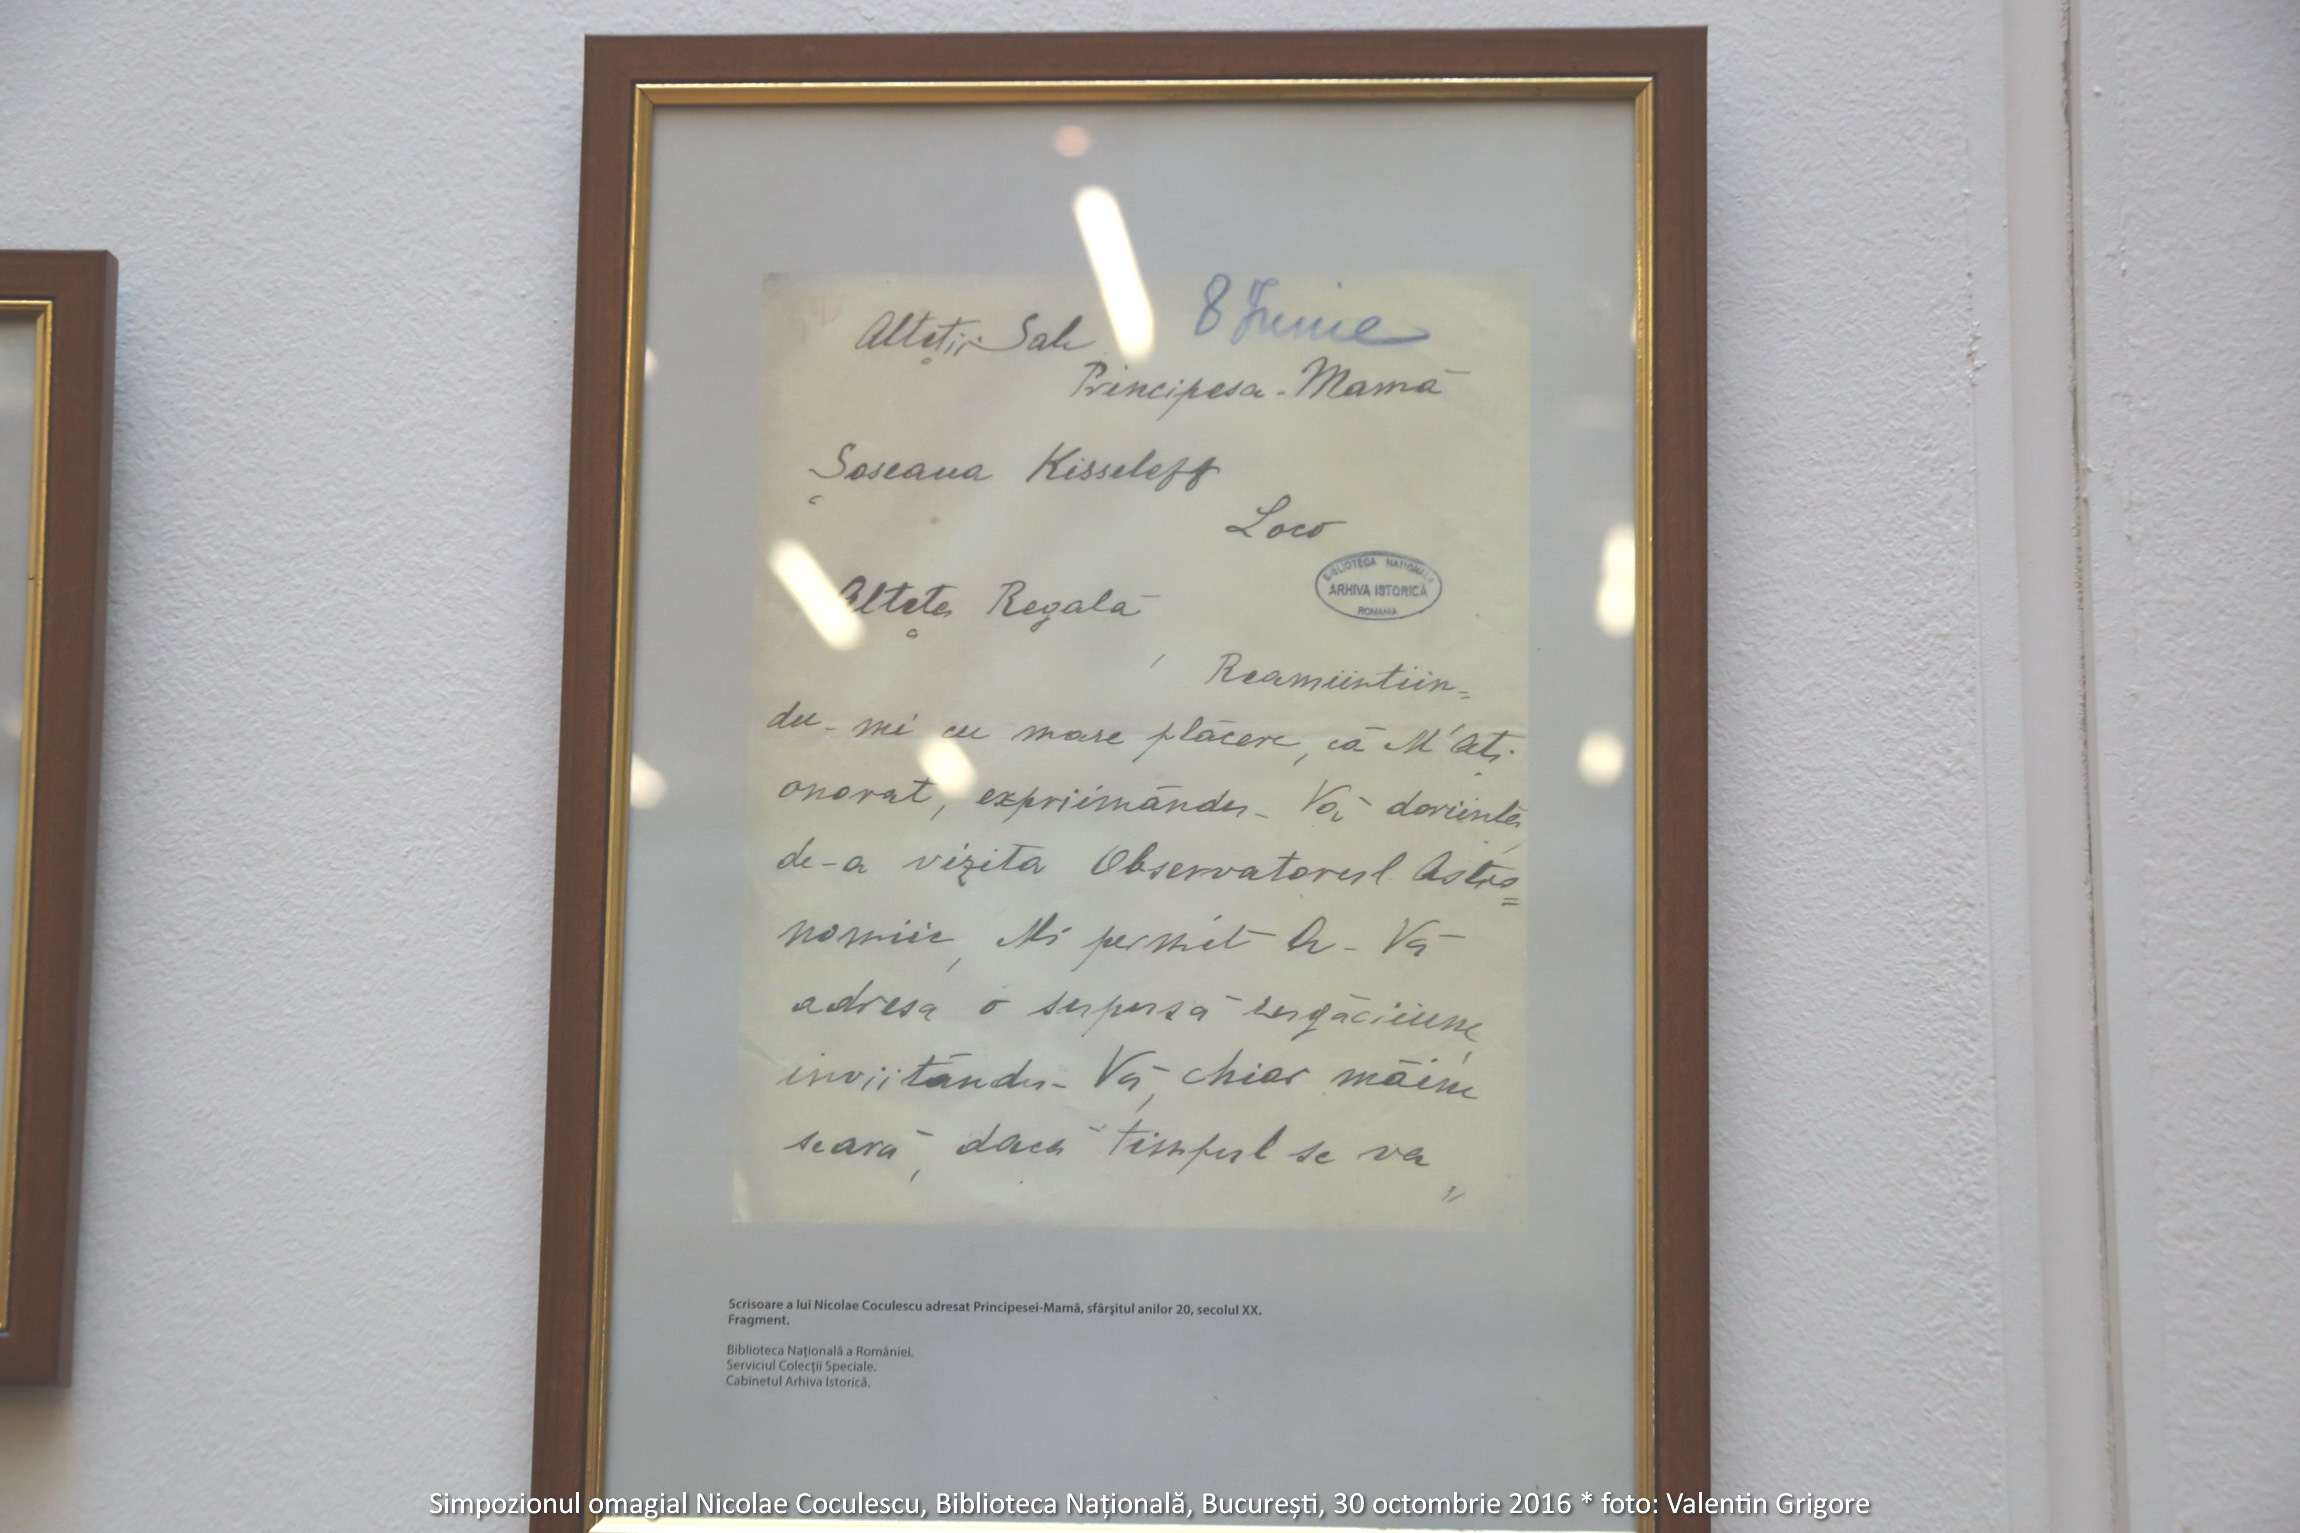 8 Iunie
Alteței Sale
Principesa-Mamă
Șoseaua Kisseleff
Loco
BIBLIOTECA NAȚIONALĂ
ARHIVA ISTORICĂ
ROMANIA
Alteță Regală
Reamintin=
du-mi cu mare plăcere, că M'Ați
onorat, exprimându-Vă dorința
de-a vizita Observatorul Astro=
nomic, Mi permit a-Vă
adresa o supusă rugăciune,
invitându-Vă, chiar mâine
seară, dacă timpul se va
Scrisoare a lui Nicolae Coculescu adresat Principesei-Mamă, sfârșitul anilor 20, secolul XX.
Fragment.
Biblioteca Națională a României.
Serviciul Colecții Speciale.
Cabinetul Arhiva Istorică.
Simpozionul omagial Nicolae Coculescu, Biblioteca Națională, București, 30 octombrie 2016 * foto: Valentin Grigore